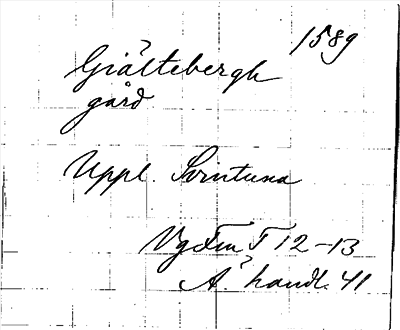 1589
Giältebergh
gård
Uppl. Svintuna
T 12-13
Å. handl. 41